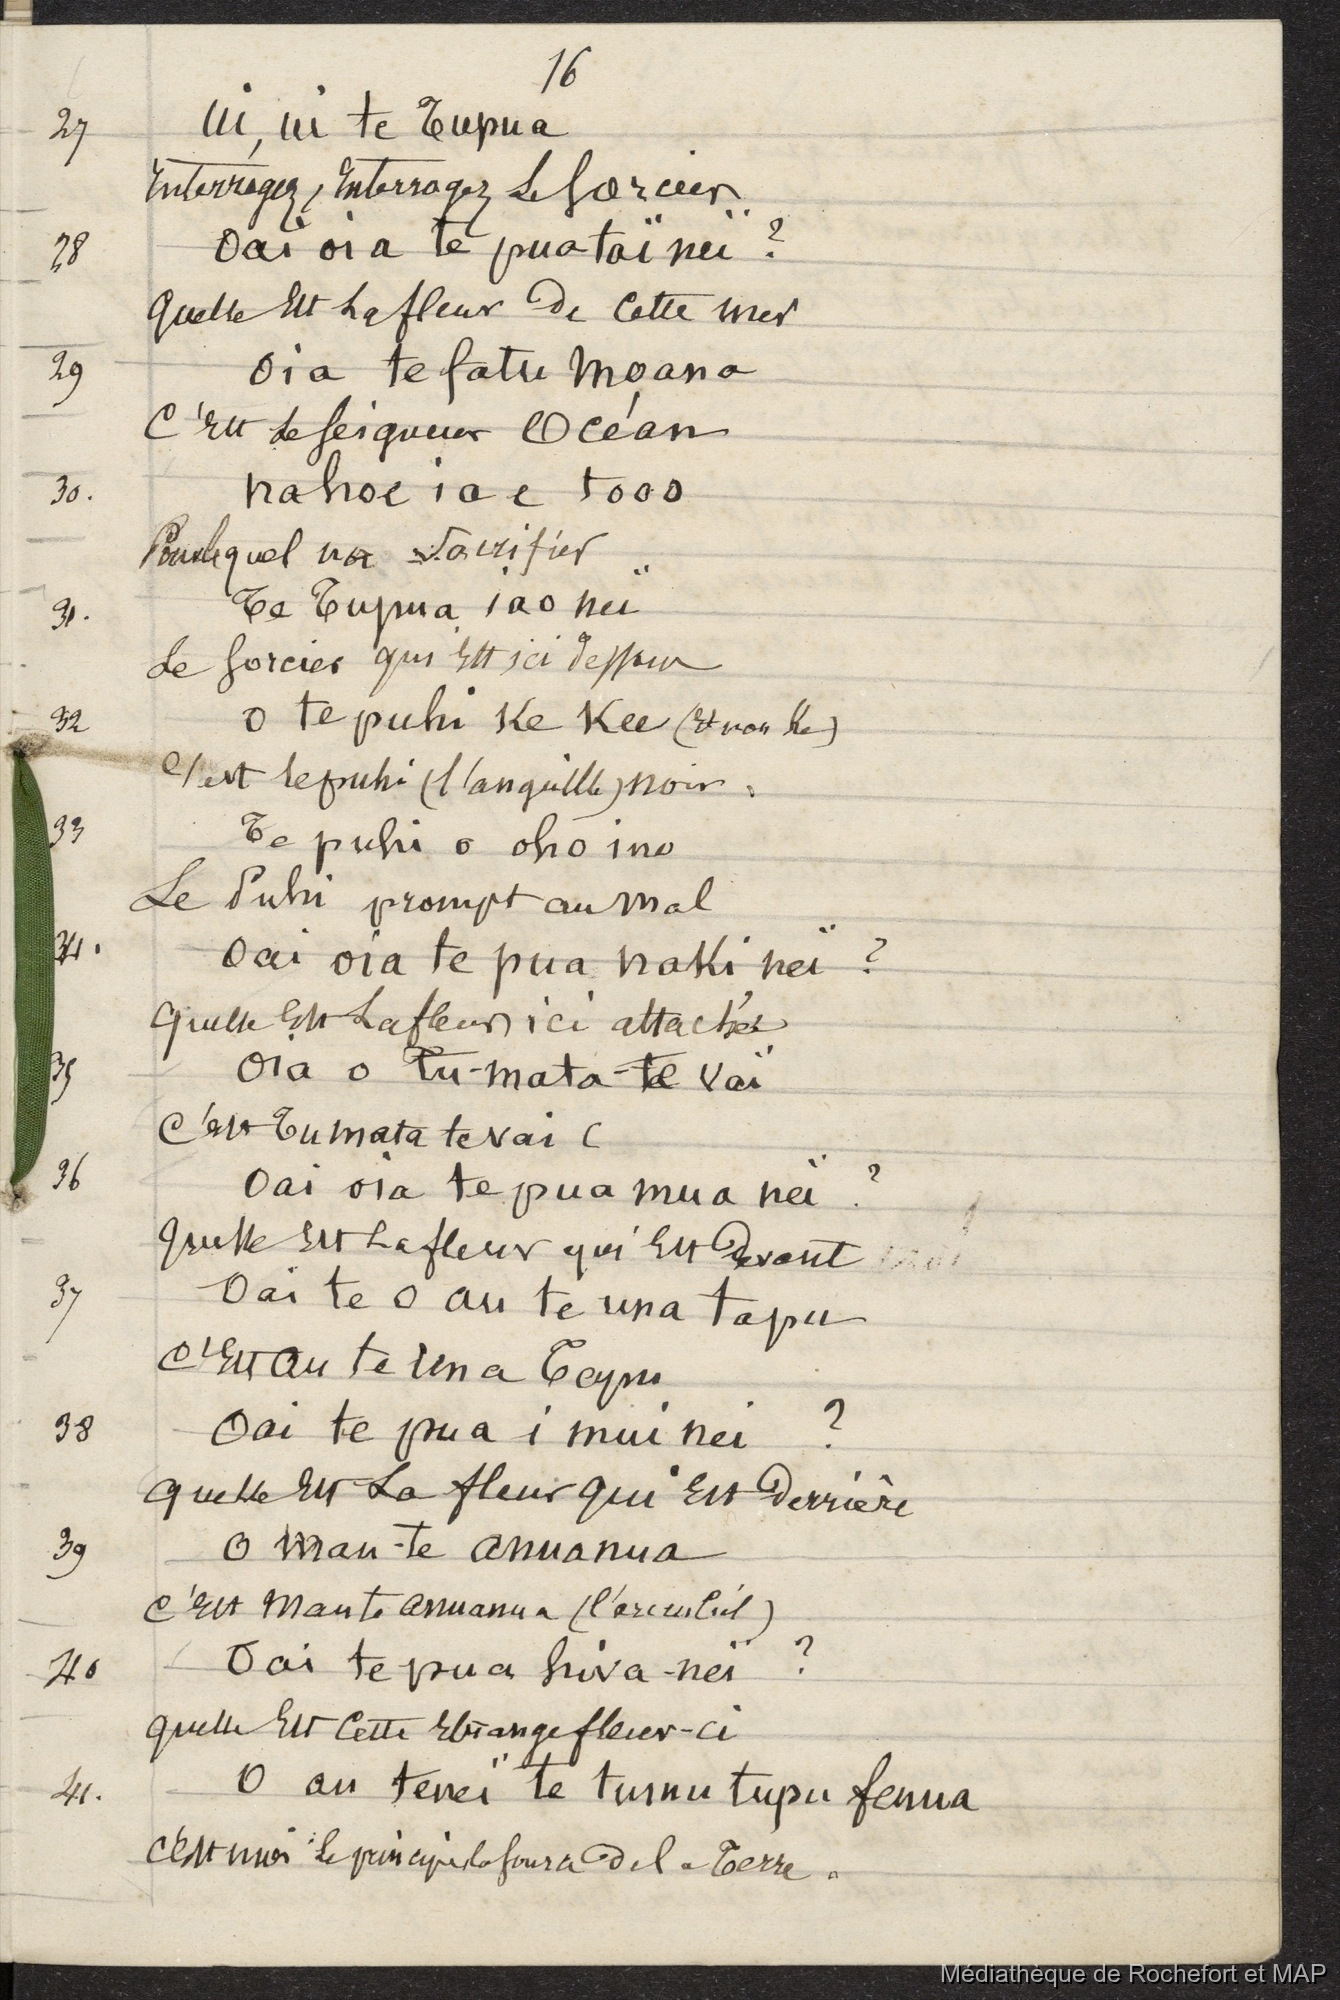 16
27 Ui, ui te Tupua
Interrogez, Interrogez Le Sorcier
28 Oai oia te pua taï neï ?
Quelle Est La fleur De Cette mer
29 Oia te fatu moana
C'Est Le Seigneur Océan
30. nahoe ia e tooo
Pour lequel va Sacrifier
31. Te Tupua iao neï
Le Sorcier qui Est ici Dessous
32 o te puhi Ke Kee (Et non Ke)
C'est le puhi (l'anguille) noir.
33 Te puhi o oho ino
Le Puhi prompt au mal
34. Oai oia te pua naki neï ?
Quelle Est La fleur ici attachée
35 Oia o Tu-mata-te vaï
C'Est Tu mata te vai (
36 Oai oia te pua mua neï ?
Quelle Est La fleur qui Est Devant
37 Oai te o au te una tapu
C'Est au te una Tapu
38 Oai te pua i mui nei ?
Quelle Est La fleur qui Est Derrière
39 O mau-te anuanua
C'Est Mau te anuanua (l'arc en Ciel)
40 Oai te pua hiva-neï ?
Quelle Est Cette Etrange fleur-ci
41. O au teneï te tumu tupu fenua
C'Est moi le principe la source De la Terre.
Médiathèque de Rochefort et MAP